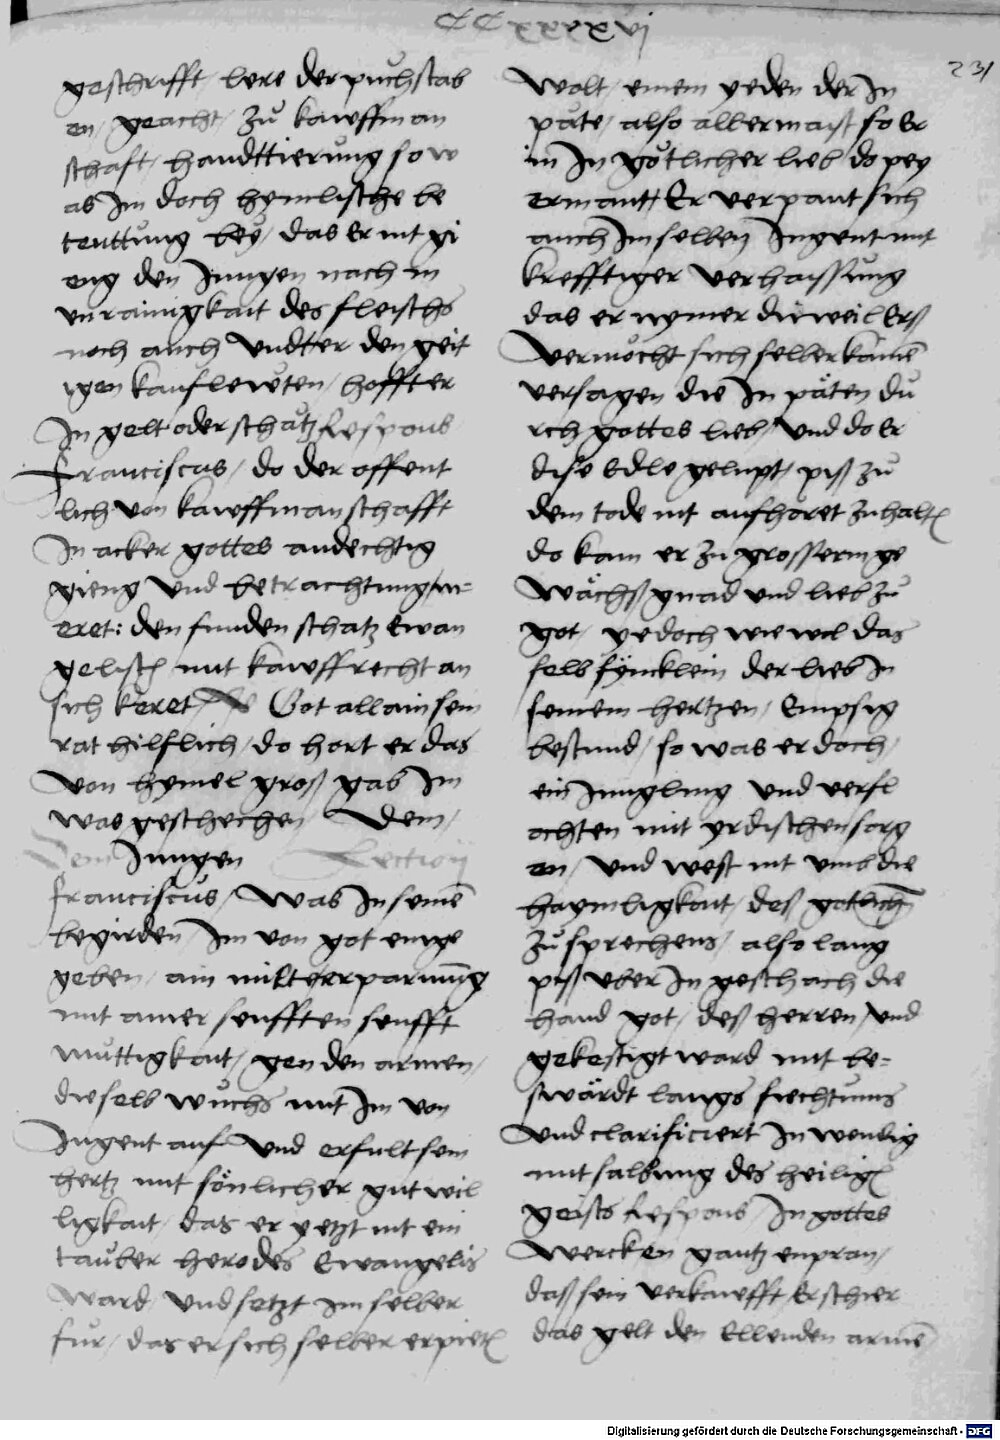 CCxxxxvi
231
geschrifft / lere der puchstab
en / geacht / zů kawffman
schafft / handttierung so w
as Im doch hymlische be
teuttung bey / das Er nit gi
eng den Jungen nach in
vnrainigkait des fleischs
noch auch vndter den geit
igen kaufleẅten / hofft er
In gelt oder schatz Respons
Franciscus / do der offent
lich von kawffmanschafft
In acker gottes andechtig
gieng vnd betrachtung m=
eret: den funden schatz Ewan
gelisch mit kawffrecht an
sich keret Got allain sein
rat hilflich / do hort er das
von hymel groß gab Im
was geschechen Dem /
Dem Jungen Lectio ij
franciscus / was In seinē
begirden / Im von got einge
geben / ain milte erparmūg
mit ainer senfften senfft
muttigkait / gen den armen /
dieselb wuchs mit Im von
Jugent auf vnd erfult sein
hertz mit sönlicher gutwil
ligkait / das er yetzt nit ein
tauber herodes Ewangelis
ward / vnd setzt im selber
fur / das er sich selber erpietē
wolt / einem yeden der In
päte / also allermaist so Er
in In götlicher lieb do pey
ermant / Er verpant sich
auch Im selben Jngent mit
krefftiger verhaissung
das er nymer dieweil Erß
vermöcht sich selber kainē
versagen die In päten du
rch gottes lieb / vnd do Er
dise Edle gelupt / piß zů
dem tode nit aufhoret zuhaltē
do kam er zu grosserm ge
wächß gnad vnd lieb zů
got / yedoch wie wil das
selb fyncklein der lieb In
seinem hertzen / Empsig
bestund / so was er doch /
ein Jungling vnd verfl
ochten mit yrdischen sorg
en / vnd west nit vmb die
haymligkait / deß gotlichñ
zů sprechens / also lang
piß vber In geschach die
hand got / deß herren / vnd
gekestigt ward mit be=
swärdt langs siechtums
vnd clarificiert Inwendig
mit salbung des heiligē
geists Respons In gottes
wercken gantz enpran /
daß sein verkawfft / Er schier
das gelt den Ellenden armē
Digitalisierung gefördert durch die Deutsche Forschungsgemeinschaft - DFG